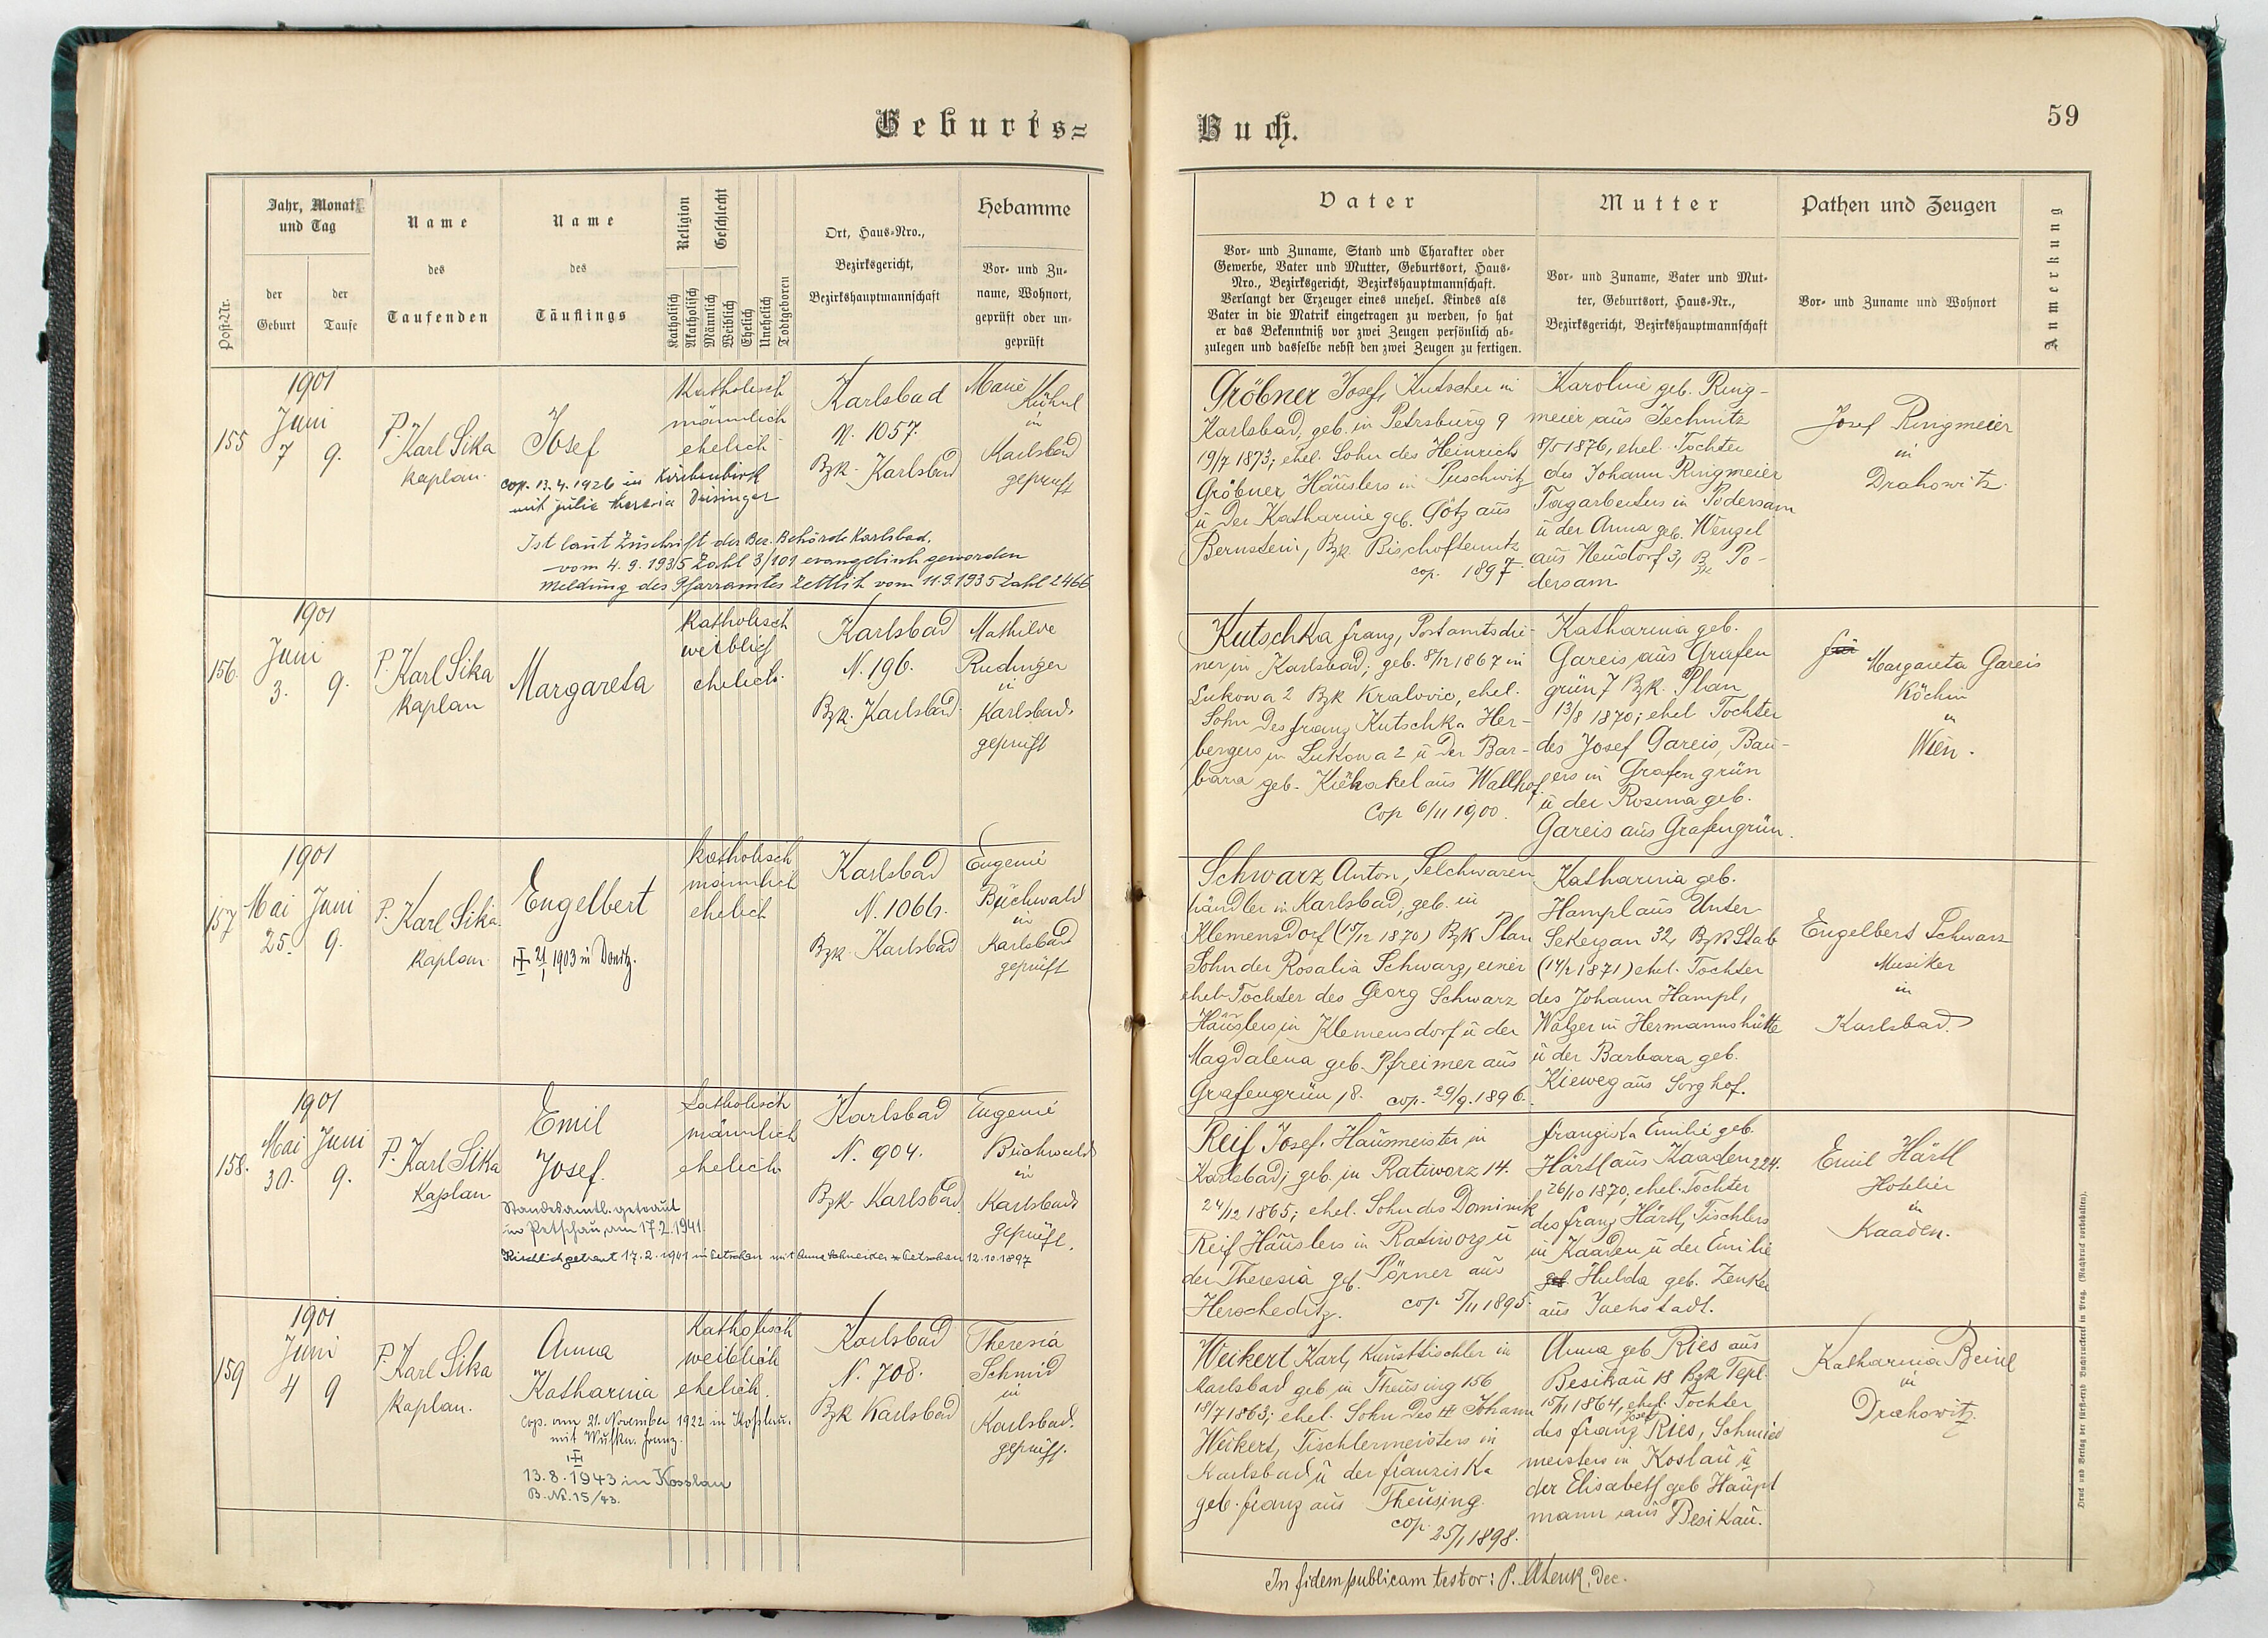 Geburts=
Jahr, Monat und Tag
Name
Name
Religion
Geschlecht
Ort, Haus=Nro.,
Hebamme
des
des
Bezirksgericht,
Post=Nr.
der Geburt
der Taufe
Taufenden
Täuflings
Katholisch
Akatholisch
Männlich
Weiblich
Ehelich
Unehelich
Todtgeboren
Bezirkshauptmannschaft
Vor= und Zu=
name, Wohnort,
geprüft oder un=
geprüft
155
1901
Juni
7 9.
P. Karl Sika
Kaplan
Josef
cop. 13.4.1926 in Kirchenbirk
mit Julie Theresia Deisinger
Katholisch
männlich
ehelich
Karlsbad
N. 1057.
Bzk. Karlsbad
Marie
Kühnl
in
Karlsbad
geprüft
Ist laut Zuschrift der Bez. Behörde Karlsbad,
vom 4.9.1935 Zahl 3/101 evangelisch geworden
Meldung des Pfarramtes Zettlitz vom 11.9.1935 Zahl 2466
156.
1901
Juni
3. 9.
P. Karl Sika
Kaplan
Margareta
Katholisch
weiblich
ehelich
Karlsbad
N. 196.
Bzk. Karlsbad
Mathilde
Rudinger
in
Karlsbad.
geprüft
157
1901
Mai Juni
25. 9.
P. Karl Sika.
Kaplan
Engelbert
21/1 1903 in Donitz.
Katholisch
männlich
ehelich
Karlsbad
N. 1066.
Bzk. Karlsbad
Eugenie
Buchwald
in
Karlsbad
geprüft
158.
1901
Mai Juni
30. 9.
P. Karl Sika
Kaplan
Emil
Josef.
Standesamtl. getraut
in Petschau, am 17.2.1941
Kirchlich getraut 17.2.1941 in Petschau mit Anna Schneider Petschau 12.10.1897
Katholisch
männlich
ehelich
Karlsbad
N. 904.
Bzk. Karlsbad
Eugenie
Buchwald
in
Karlsbad.
geprüft.
159
1901
Juni
4 9
P. Karl Sika
Kaplan.
Anna
Katharina
cop. am 21. November 1922 in Koßlau.
mit Franz.
13.8.1943 in Kosslau
B.Nr. 15/43.
Katholisch
weiblich
ehelich.
Karlsbad
N. 708.
Bzk Karlsbad
Theresia
Schmid
in
Karlsbad.
geprüft.
Buch.
59
Vater
Mutter
Pathen und Zeugen
Anmerkung
Vor= und Zuname, Stand und Charakter oder
Gewerbe, Vater und Mutter, Geburtsort, Haus=
Nro., Bezirksgericht, Bezirkshauptmannschaft.
Verlangt der Erzeuger eines unehel. Kindes als
Vater in die Matrik eingetragen zu werden, so hat
er das Bekenntniß vor zwei Zeugen persönlich ab=
zulegen und dasselbe nebst den zwei Zeugen zu fertigen.
Vor= und Zuname, Vater und Mut=
ter, Geburtsort, Haus=Nr.,
Bezirksgericht, Bezirkshauptmannschaft
Vor= und Zuname und Wohnort
Gröbner Josef, Kutscher in
Karlsbad, geb. in Petrsburg 9
19/7 1873; ehel. Sohn des Heinrich
Gröbner, Häuslers in Puschwitz
u der Katharine geb. Götz aus
Bernstein, Bzk. Bischofteinitz
cop. 1897.
Karoline geb. Ring-
meier aus Jechnitz
8/5 1876, ehel. Tochter
des Johann Ringmeier
Tagarbeiters in Podersam
u der Anna geb. Wenzel
aus Neudorf 3, Bzk Po-
dersam
Josef Ringmeier
in
Drahowitz.
Kutschka Franz, Postamtsdie-
ner in Karlsbad; geb. 8/12 1867 in
Lukowa 2 Bzk Kralovic, ehel.
Sohn des Franz Kutschka Her-
bergers in Lukowa 2 u der Bar-
bara geb. aus Wallhof.
Cop 6/11 1900.
Katharina geb.
Gareis aus Grafen
grün 7 Bzk. Plan
13/8 1870; ehel Tochter
des Josef Gareis, Bau-
ers in Grafengrün
u der Rosina geb.
Gareis aus Grafengrün.
Margareta Gareis
Köchin
in
Wien.
Schwarz Anton, Selchwaren
händler in Karlsbad, geb. in
Klemensdorf (15/12 1870) Bzk Plan
Sohn der Rosalia Schwarz, einer
ehel. Tochter des Georg Schwarz
Häuslers in Klemensdorf u der
Magdalena geb. Pfreimer aus
Grafengrün 18. cop. 29/9. 1896.
Katharina geb.
Hampl aus Unter
Sekerzan 32, Bzk Stab
(14/2 1871) ehel. Tochter
des Johann Hampl,
Walzer in Hermannshütte
u der Barbara geb.
Kieweg aus Sorghof.
Engelbert Schwarz
Musiker
in
Karlsbad.
Reif Josef, Hausmeister in
Karlsbad; geb. in Ratiworz 14.
24/12 1865; ehel. Sohn des Dominik
Reif Häuslers in Ratiworz u
der Theresia geb. Pörner aus
Herscheditz. cop. 5/11 1895.
Franziska Emilie geb.
Härtl aus Kaaden 224.
26/10 1870, ehel. Tochter
des Franz Härtl, Tischlers
in Kaaden u der Emilie
geb. Hulda geb. Zenker
aus Jöchstadt.
Emil Härtl
Hotelier
in
Kaaden.
Weikert Karl, Kunsttischler in
Karlsbad geb. in Theusing 156
18/7 1863; ehel. Sohn des Johann
Weikert, Tischlermeisters in
Karlsbad u der Franziska
geb. Franz aus Theusing.
cop. 25/1 1898.
Anna geb Ries aus
Besikau 18 Bzk Tepl.
15/11 1864, ehel. Tochter
des Franz Josef Ries, Schmied
meisters in Koslau u
der Elisabeth geb Haupt
mann aus Besikau.
Katharina Beinl
in
Drahowitz.
In fidem publicam testor: P. Dec.
Druck und Verlag der fürst=erzb. Buchdruckerei in Prag. (Nachdruck vorbehalten).